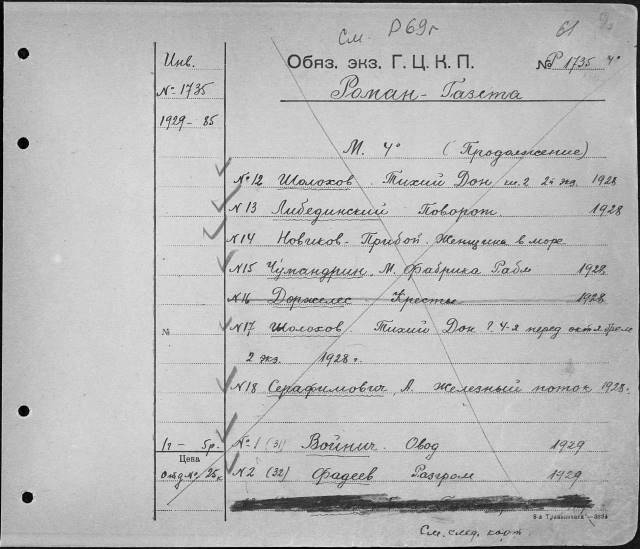 См. Р69г
61
Инв.
№ 1735
1929-85
Обяз. экз. Г. Ц. К. П.
№ Р 1735 4°
Роман-Газета
М. 4° (Продолжение)
№12 Шолохов. Тихий Дон 2 экз. 1928
№13 Либединский Поворот. 1928
№14 Новиков-Прибой. Женщина в море
№15 Чумандрин, М. Фабрика Рабле 1928
№16 Доржелес Кресты 1928
№
№17 Шолохов. Тихий Дон 4-я перед
2 экз. 1928г.
№18 Серафимович, А. Железный поток 1928.
1г - 5р.
№1 (31) Войнич. Овод 1929
Цена
отд. № 25к
№2 (32) Фадеев Разгром 1929
См. след. карт.